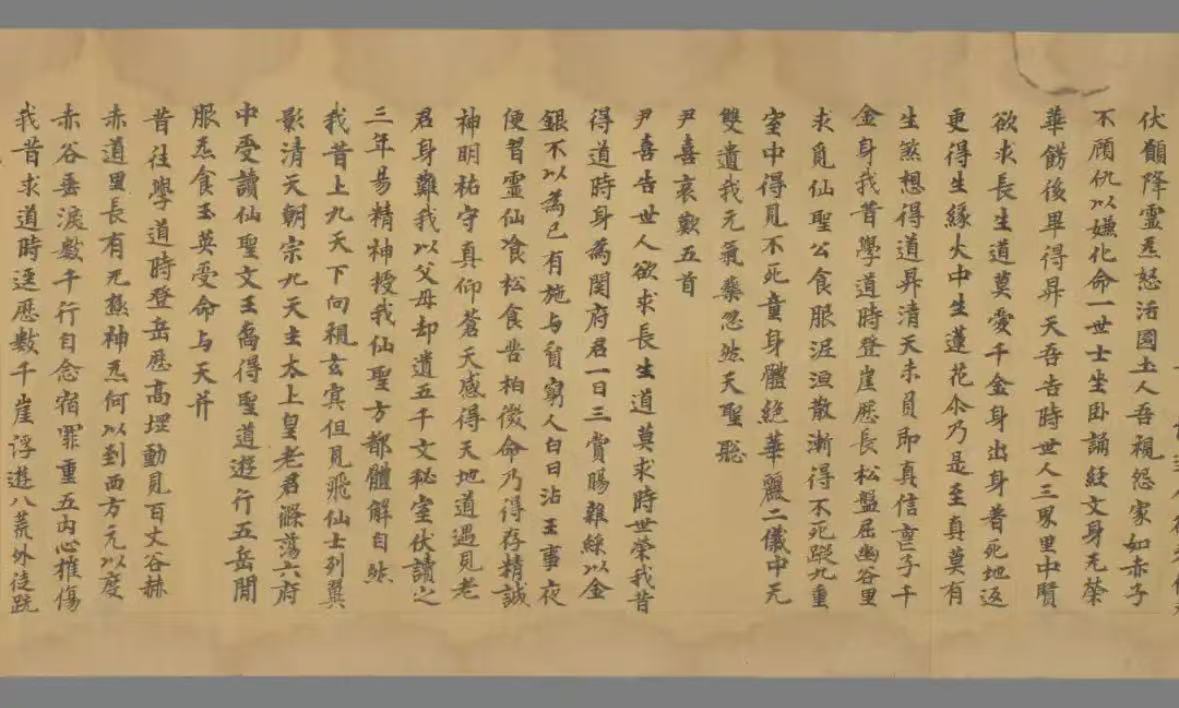 伏願降靈炁怒活國土人吾視怨家如赤子
不顧仇以嫌化命一世士坐卧誦經文身无榮
華餝後畢得昇天吾告時世人三界里中賢
欲求長生道莫愛千金身出身著死地返
更得生緣火中生蓮花尒乃是至真莫有
生煞想得道昇清天未負即真信童子千
金身我昔學道時登崖歷長松盤屈幽谷里
求覓仙聖公食服泥洹散漸得不死蹤九重
室中得見不死童身體絶華麗二儀中无
雙遺我元氣藥忽然天聖聡
尹喜哀歎五首
尹喜告世人欲求長生道莫求時世榮我昔
得道時身為関府君一日三賞賜雜綵以金
銀不以為已有施与貧窮人白日沾王事夜
便習靈仙飡松食啚柏微命乃得存精誠
神明祐守真仰蒼天感得天地道遇見老
君身難我以父母却遺五千文秘室伏讀之
三年易精神授我仙聖方都體解自然
我昔上九天下向視玄冥但見飛仙士列翼
影清天朝宗九天主太上皇老君滌蕩六府
中受讀仙聖文王喬得聖道遊行五岳間
服炁食玉英受命与天并
昔往學道時登岳歷高堽動見百丈谷赫
赤道里長有无熱神炁何以到西方元以度
赤谷垂淚數千行自念宿罪重五内心摧傷
我昔求道時逕歷數千崖浮遊八荒外徒跣